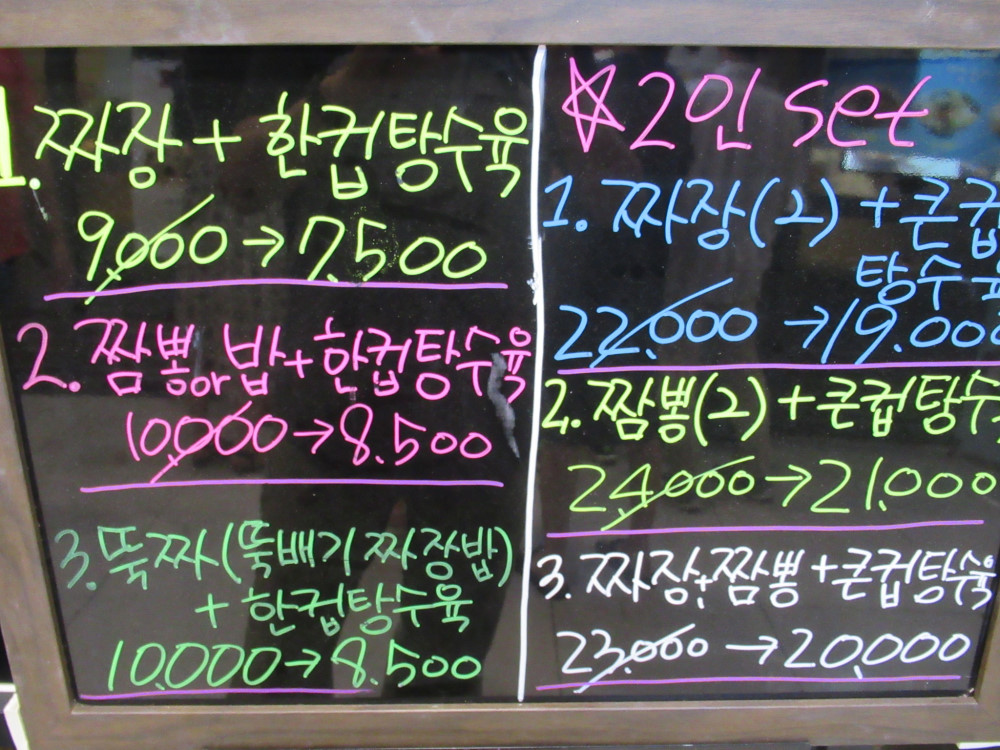 1. 짜장 + 한컵탕수육
9,000 → 7,500
2. 짬뽕or밥+한컵탕수육
10,000 → 8.500
3. 뚝짜(뚝배기 짜장밥)
+ 한컵탕수육
10.000 → 8.500
☆2인 set
1. 짜장(2) + 큰컵
탕수육
22.000 → 19.000
2. 짬뽕(2) + 큰컵탕수
24.000 → 21.000
3. 짜장+짬뽕 + 큰컵탕수육
23.000 → 20,000